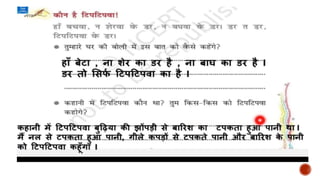 कौन है टिपटिपवा!
हाँ बचवा, न शेरवा के डर, न बघवा के डर। डर त डर,
टिपटिपवा के डर।
तुम्हारे घर की बोली में इस बात को कैसे कहेंगे?
हाँ बेटा , ना शेर का डर है , ना बाघ का डर है ।
डर तो सिर्फ टिपटिपवा का है ।
कहानी में टिपटिपवा कौन था? तुम किस-किस को टिपटिपवा
कहोगे?
कहानी में टिपटिपवा बुढ़िया की झोंपड़ी से बारिश का टपकता हुआ पानी था ।
मैं नल से टपकता हुआ पानी, गीले कपड़ों से टपकते पानी और बारिश के पानी
को टिपटिपवा कहूँगा ।